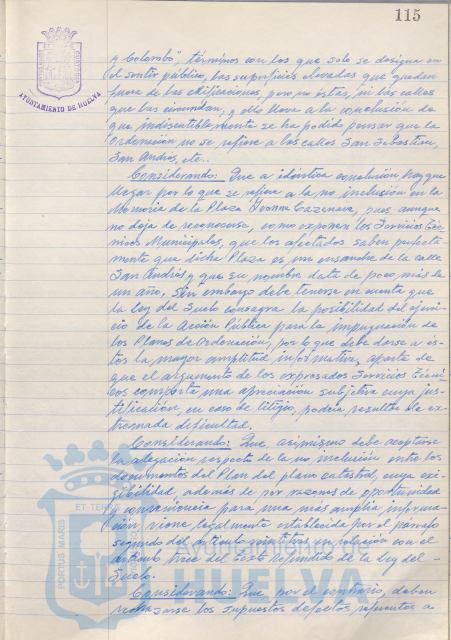 115
AYUNTAMIENTO DE HUELVA
y Colombo", términos con los que solo se designa en
el sentir público, las superficies elevadas que quedan
fuera de las edificaciones, pero no éstas, ni las calles
que las circundan, y ello lleva a la conclusión de
que indiscutiblemente se ha podido pensar que la
Ordenación no se refiere a las calles San Sebastian,
San Andrés, etc..
Considerando: Que a idéntica conclusión hay que
llegar por lo que se refiere a la no inclusión en la
Memoria de la Plaza Ivonne Cazenave, pues aunque
no deja de reconocerse, como exponen los Servicios Téc-
nicos Municipales, que los afectados saben perfecta-
mente que dicha Plaza es un ensanche de la calle
San Andrés y que su nombre data de poco más de
un año, sin embargo debe tenerse en cuenta que
la Ley del Suelo consagra la posibilidad del ejerci-
cio de la Acción Pública para la impugnación de
los Planes de Ordenación, por lo que debe darse a és-
tos la mayor amplitud informativa, aparte de
que el argumento de los expresados Servicios Técni-
cos comporta una apreciación subjetiva cuya jus-
tificación, en caso de litigio, podría resultar de ex-
tremada dificultad.
Considerando: Que, asimismo debe aceptarse
la alegación respecto de la no inclusión entre los
documentos del Plan del plano catastral, cuya exi-
gibilidad, además de por razones de oportunidad
y conveniencia para una más amplia informa-
ción, viene legalmente establecida por el párrafo
segundo del artículo veintitres en relación con el
artículo trece del Texto Refundido de la Ley del
Suelo.
Considerando: Que, por el contrario, deben
rechazarse los supuestos defectos referentes a
PORTUS MARIS ET TERRAE
Ayuntamiento de
HUELVA